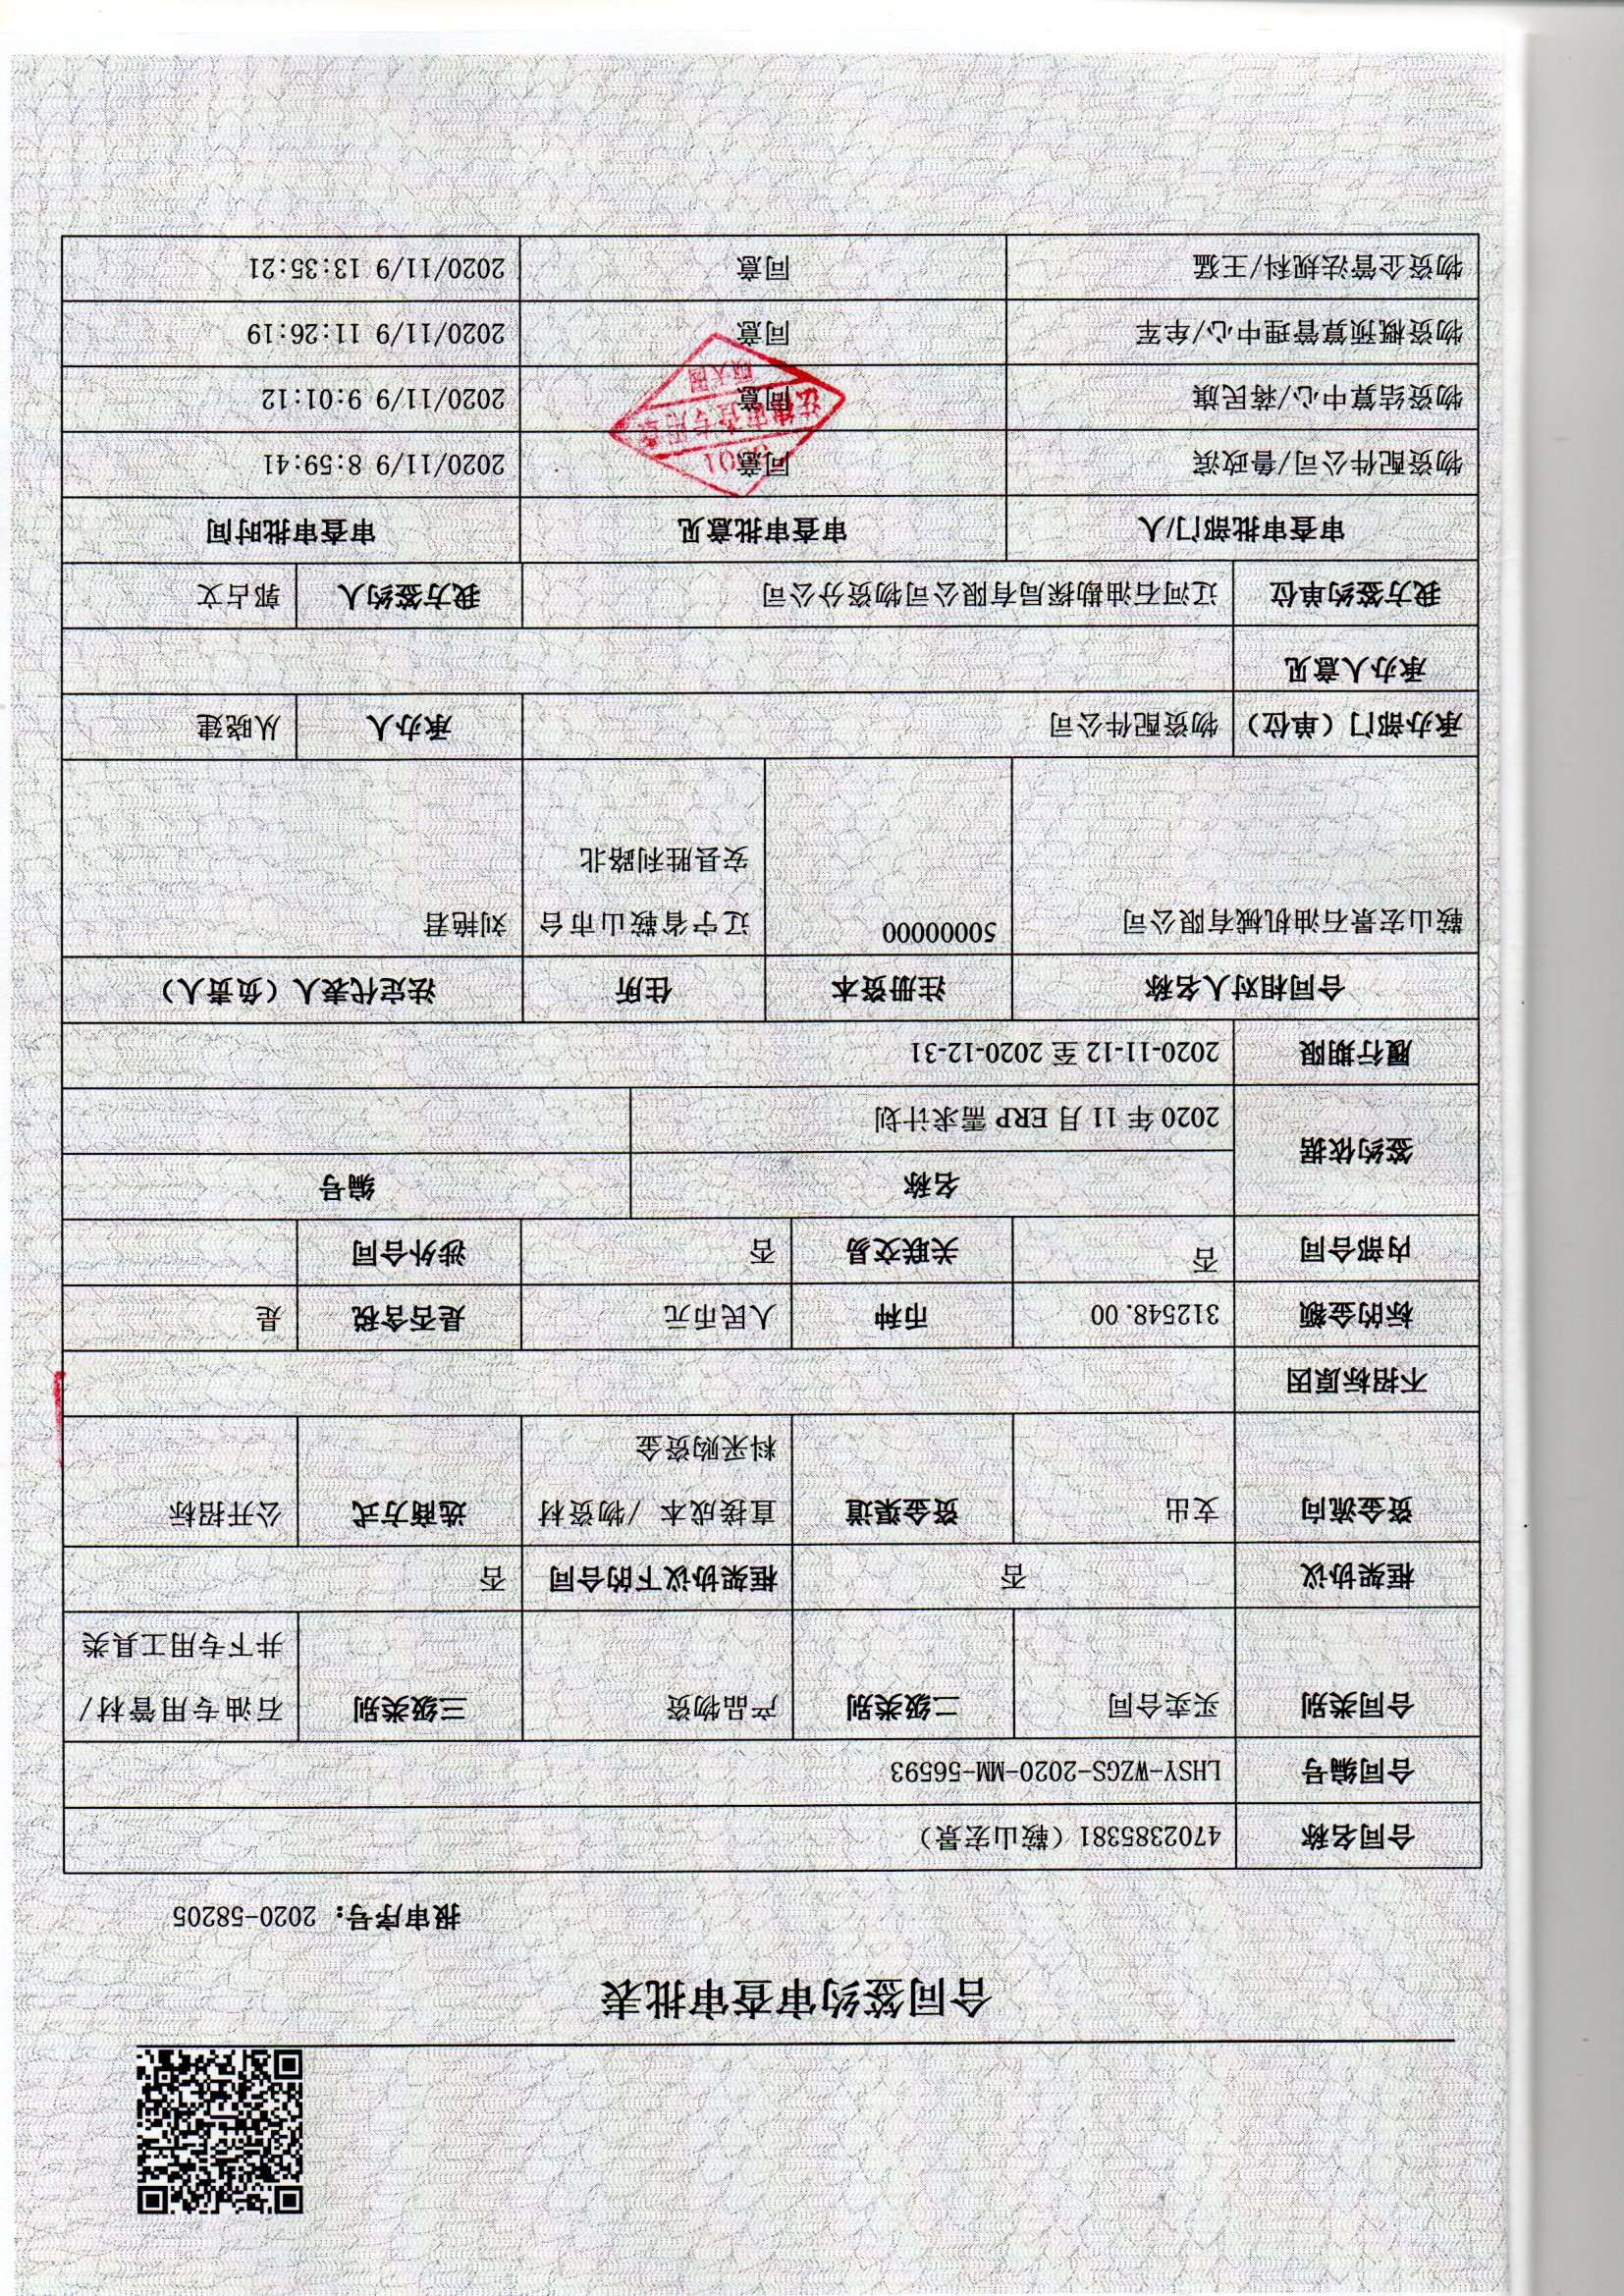 合同签约审查审批表
报审序号: 2020-58205
合同名称 4702385381（鞍山宏景）
合同编号 LHSY-WZGS-2020-MM-56593
合同类别 买卖合同 二级类别 产品物资 三级类别 石油专用管材/
井下专用工具类
框架协议 否 框架协议下的合同 否
资金流向 支出 资金渠道 直接成本 /物资材 选商方式 公开招标
料采购资金
不招标原因
标的金额 312548.00 币种 人民币元 是否含税 是
内部合同 否 关联交易 否 涉外合同
签约依据 名称 编号
2020 年 11 月 ERP 需求计划
履行期限 2020-11-12 至 2020-12-31
合同相对人名称 注册资本 住所 法定代表人（负责人）
鞍山宏景石油机械有限公司 50000000 辽宁省鞍山市台 刘艳君
安县胜利路北
承办部门（单位） 物资配件公司 承办人 从晓建
承办人意见
我方签约单位 辽河石油勘探局有限公司物资分公司 我方签约人 郭占文
审查审批部门/人 审查审批意见 审查审批时间
物资配件公司/鲁政滨 同意 2020/11/9 8:59:41
物资结算中心/蒋民旗 同意 2020/11/9 9:01:12
物资概预算管理中心/牟军 同意 2020/11/9 11:26:19
物资企管法规科/王猛 同意 2020/11/9 13:35:21
法律审查专用章